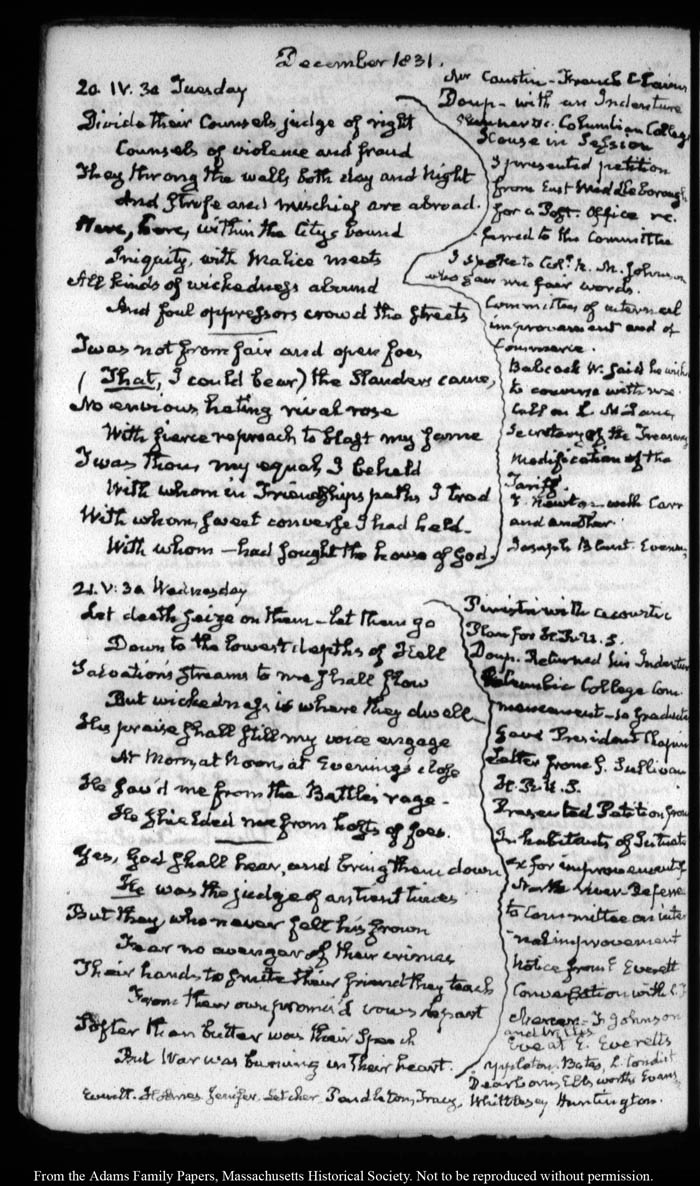 December 1831.
20. IV. 30 Tuesday
Divide their Counsels judge of right
Counsels of violence and fraud
They throng the walls both day and Night
And Strife and mischief are abroad.
Here, here, within the City's bound
Iniquity, with Malice meets
All kinds of wickedness abound
And foul oppressors crowd the streets
I was not from fair and open foes
(That, I could bear) the Slanders came,
No envious, hating rival rose
With fierce reproach to blast my fame
I was thou, my equal, I beheld
With whom in Friendship's paths I trod
With whom, sweet converse I had held.
With whom — had sought the house of God.
Mr Caustin - French Claims
Doup - with an Indenture
Columbian College
House in Session
I presented petition
from East Middleborough
for a Post. Office re.
ferred to the Committee
I spoke to Coll. R. M. Johnson
who gave me fair words.
Committees of internal
improvement and of
Commerce.
Babcock W. said he wish
to converse with me.
Call on L. McLane,
Secretary of the Treasury
Modification of the
Tariff.
T. Newton with Carr
and another.
Joseph Blunt Evening
21. V. 30 Wednesday
Let death seize on them — let them go
Down to the lowest depths of Hell
Salvation's streams to me shall flow
But wickedness is where they dwell.
His praise shall still my voice engage
At Morn, at Noon, at Evening's close
He sav'd me from the Battle's rage -
He shielded me from hosts of foes.
Yes, God shall hear, and bring them down
He was the judge of antient times
But they who never felt his frown
Fear no avenger of their crimes
Their hands to smite their friend they teach
From their own promis'd vows depart
Softer than butter was their Speech
But War was burning in their heart.
with acoustic
Plan for H.R.U.S.
Doup. Returned his Indentur
Columbia College Com
mencement - 10 graduate
Gave President Chapin
Letter from G. Sullivan
H.R.U.S.
Presented Petition from
Inhabitants of Scituate
&c for improvement of
North River - Refere
to Committee on inter
nal improvement
Notice from E Everett
Conversation with C. F.
Mercer - F. Johnson
and Wilkes
Eve at E. Everetts
Appleton. Bates, L. Condict
Dearborn, Ellsworth Evans
Everett. Holmes Jenifer. Letcher, Pendleton, Tracy, Whittlesey Huntington.
From the Adams Family Papers, Massachusetts Historical Society. Not to be reproduced without permission.